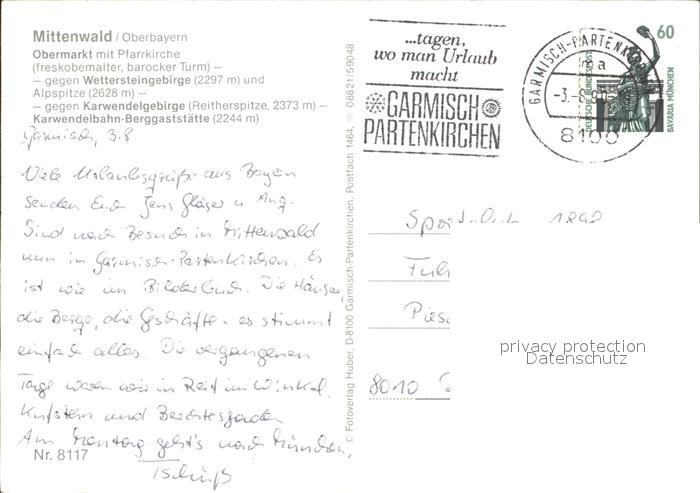 Mittenwald / Oberbayern
Obermarkt mit Pfarrkirche
(freskobemalter, barocker Turm) –
– gegen Wettersteingebirge (2297 m) und
Alpspitze (2628 m) –
– gegen Karwendelgebirge (Reitherspitze, 2373 m) –
Karwendelbahn-Berggaststätte (2244 m)
Garmisch, 3.8
Viele Urlaubsgrüße aus Bayern
senden Euch Jens Gläser u. Ang.
Sind nach Besuch in Mittenwald
nun in Garmisch-Partenkirchen. Es
ist wie im Bilderbuch. Die Häuser,
die Berge, die Geschäfte - es stimmt
einfach alles. Die vergangenen
Tage waren wir in Reit im Winkel,
Kufstein und Berchtesgaden
Am Montag geht's nach München,
Tschüß
Nr. 8117
© Fotoverlag Huber, D-8100 Garmisch-Partenkirchen, Postfach 1464, ☏ 08821/59048
...tagen,
wo man Urlaub
macht
GARMISCH
PARTENKIRCHEN
GARMISCH-PARTENK
a
-3.-8.
8100
60
DEUTSCHE BUNDESPOST
BAVARIA MÜNCHEN
8010
privacy protection
Datenschutz